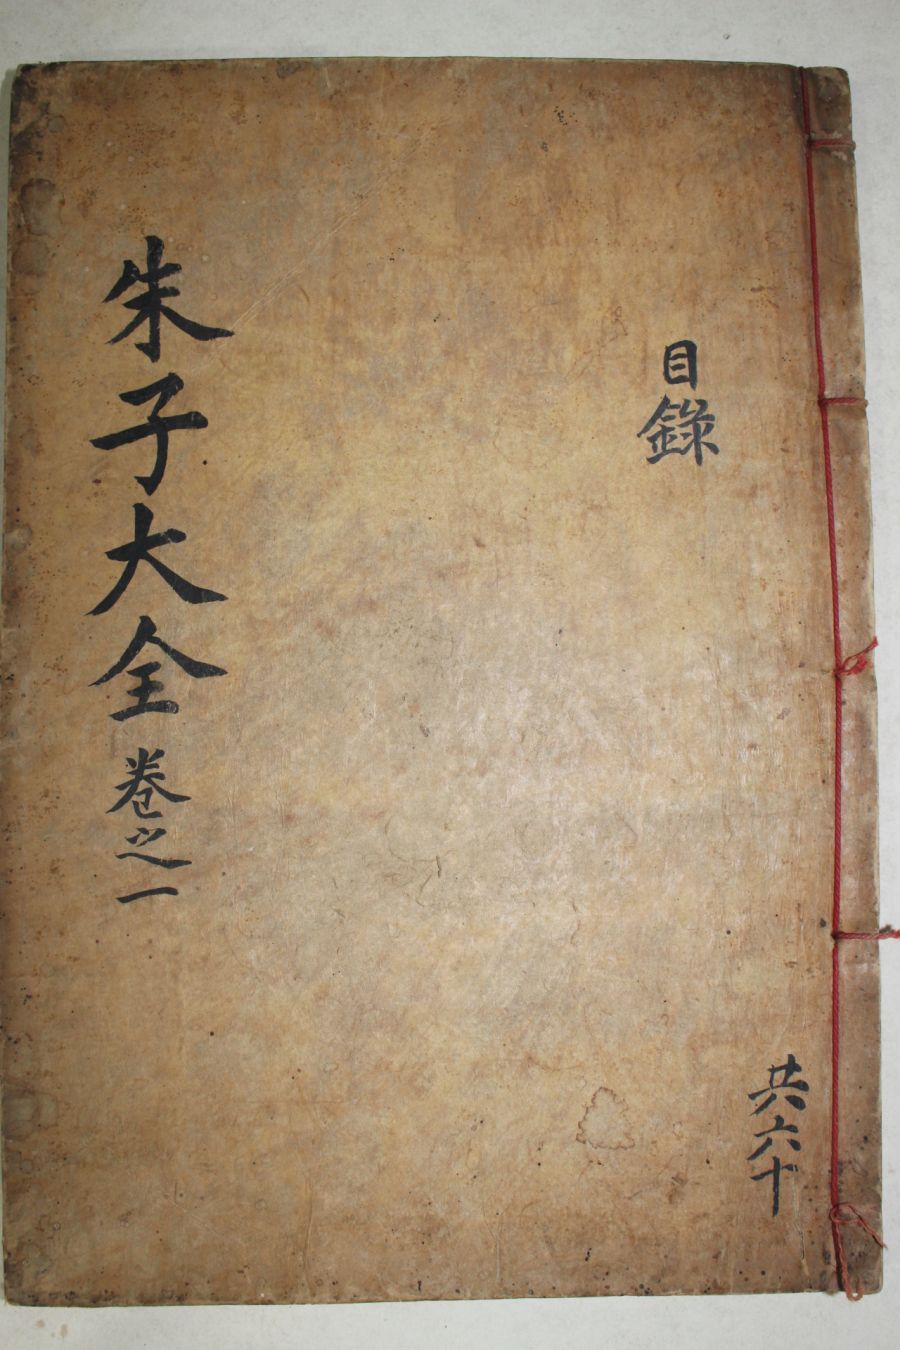 目錄
朱子大全 卷之一
共六十